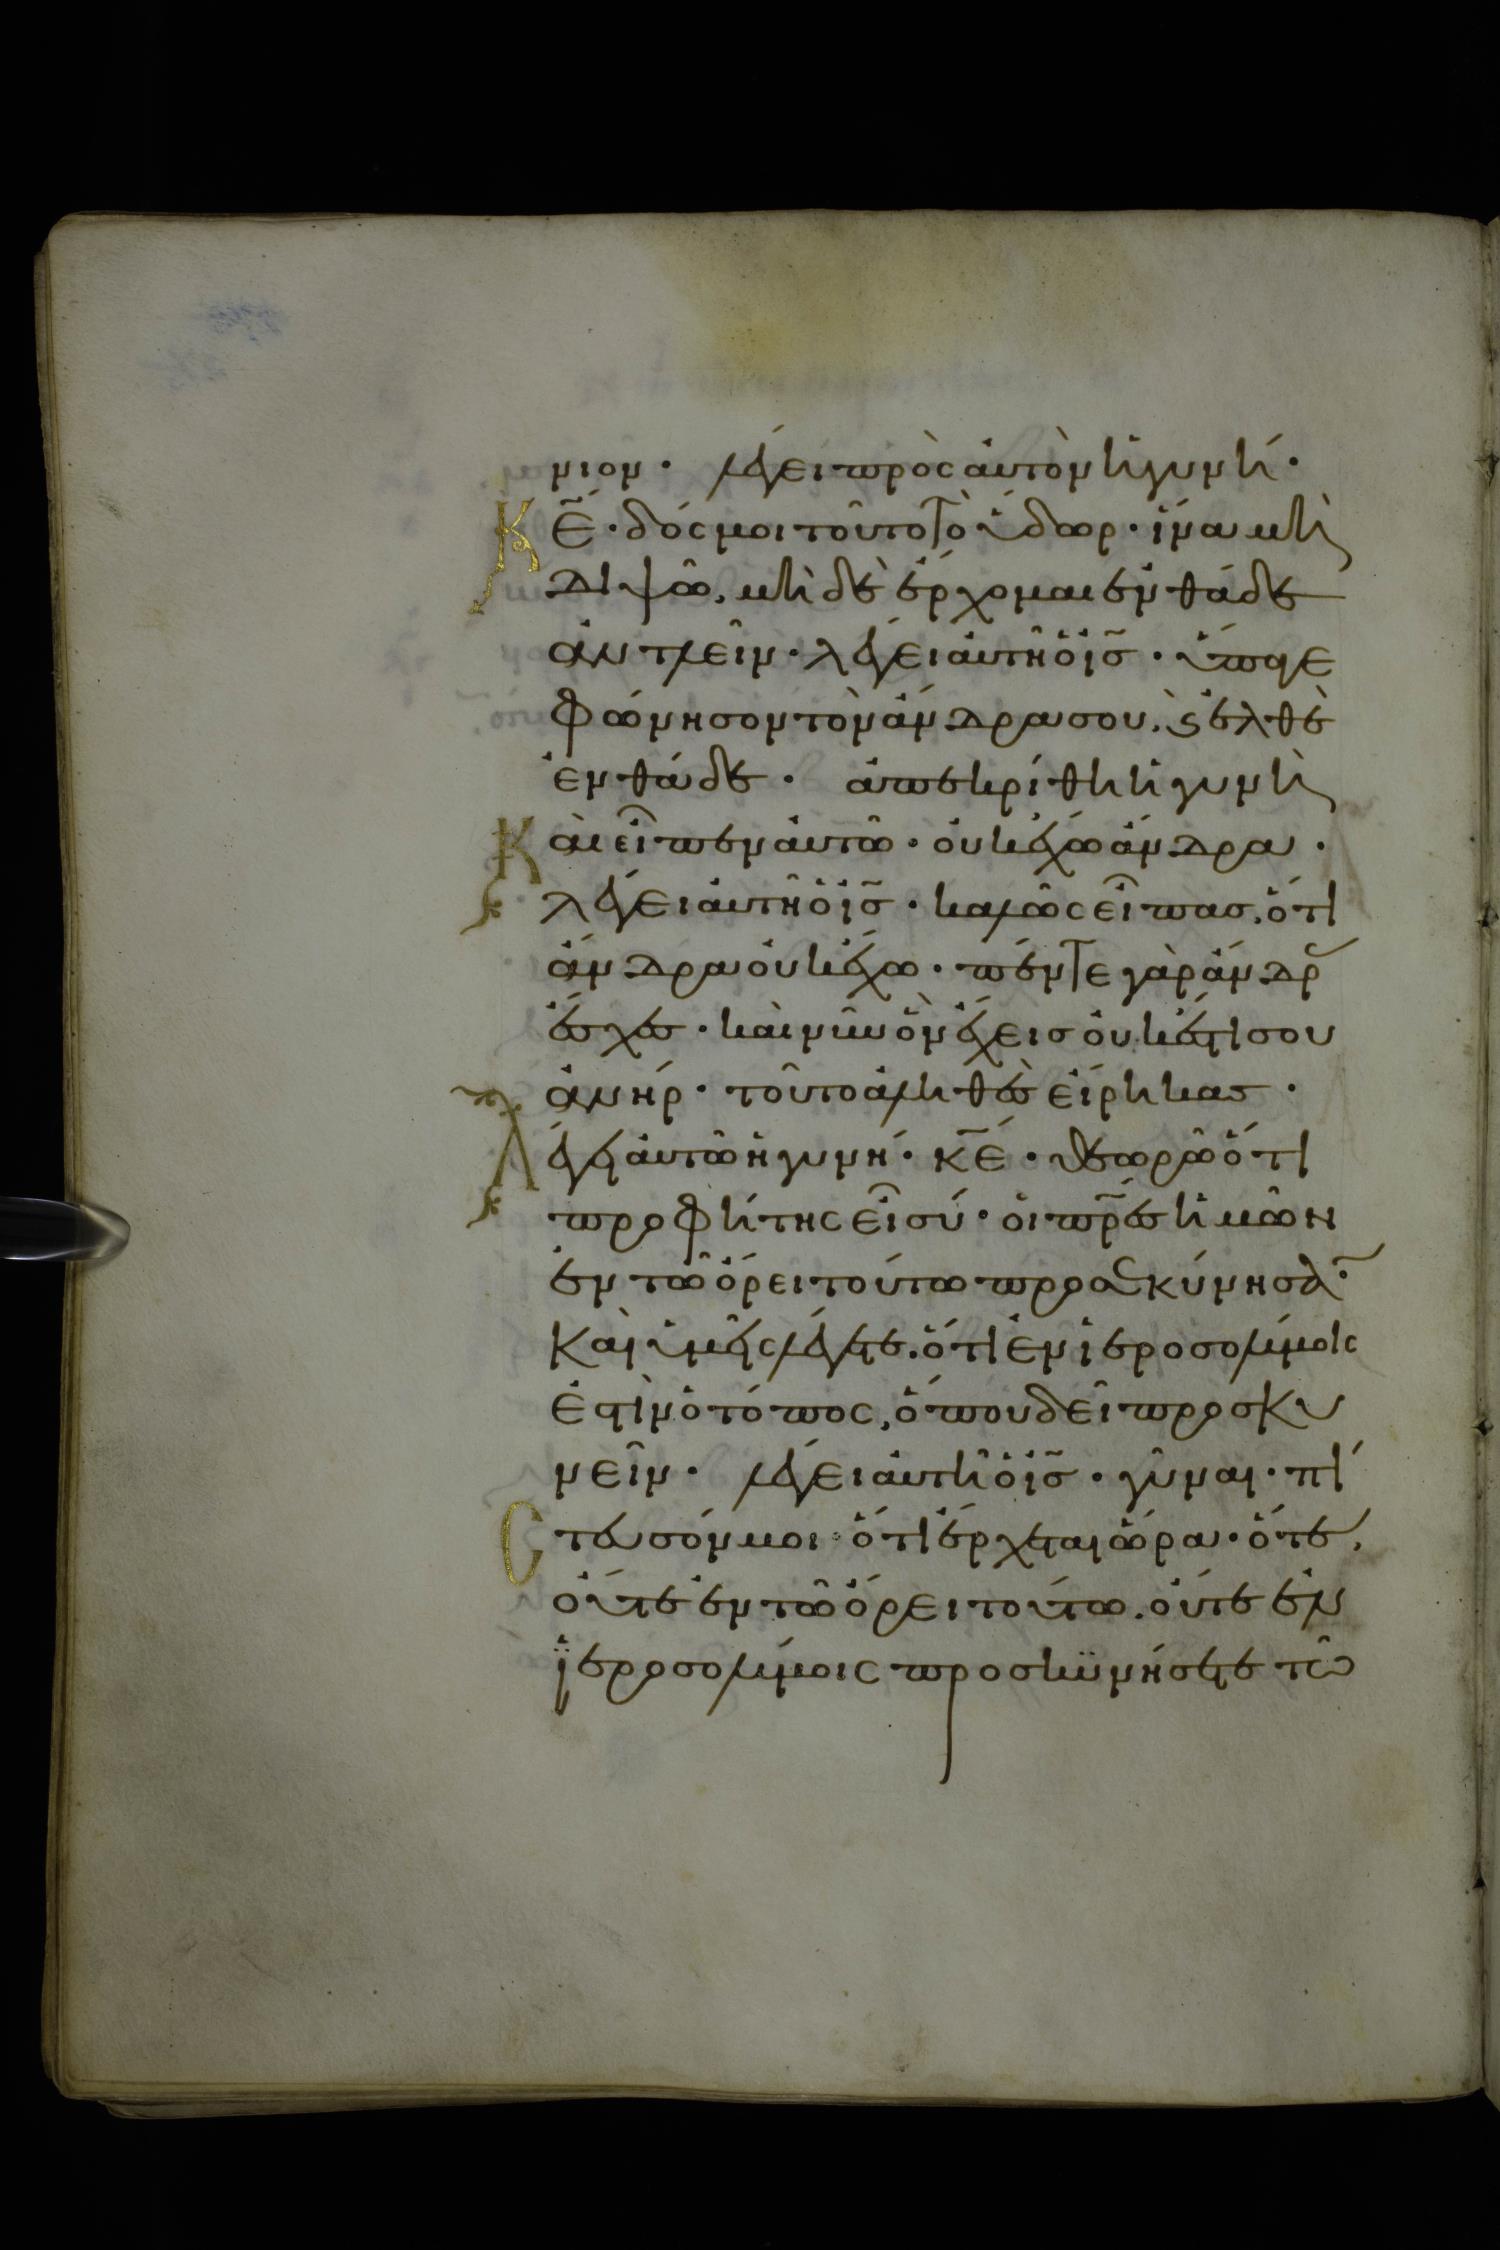 νιον· λέγει πρὸς ἀυτὸν ἡ γυνή·
Κ̅Ε̅· δός μοι τοῦτο τὸ ὕδωρ· ἵνα μὴ
διψῶ, μὴ δὲ ἔρχομαι ἐνθάδε
ἀντλεῖν· λέγει ἀυτῆ ὁ ἰ̅σ̅· ὕπαγε
φώνησον τὸν ἄνδρα σου, ϗ̀ ἐλθὲ
ἐνθάδε· ἀπεκρίθη ἡ γυνὴ
Καὶ εἶπεν ἀυτῶ· ὀυκ ἔχω ἄνδρα·
λέγει ἀυτῆ ὁ ἰ̅σ̅· καλῶς εἶπας, ὅτι
ἄνδρα ὀυκ ἔχω· πέντε γὰρ ἄνδρ
ἔσχες· καὶ νῦν ὃν ἔχεις ὀυκ ἔστι σου
ἀνήρ· τοῦτο ἀληθὲς εἴρηκας·
Λέγει ἀυτῶ ἡ γυνή· κ̅ε̅· θεωρῶ ὅτι
προφήτης εἶ σύ· ὁι πρ̅ε̅ς ἡμῶν
ἐν τῶ ὄρει τούτω προσεκύνησαν·
Καὶ ὑμεῖς λέγετε, ὅτι ἐν ἱεροσολύμοις
ἐστὶν ὁ τόπος, ὅπου δεῖ προσκυ
νεῖν· λέγει ἀυτῆ ὁ ἰ̅σ̅· γύναι· πί
Στευσόν μοι· ὅτι ἔρχεται ὥρα· ὅτε,
ὄυτε ἐν τῶ ὄρει τούτω, ὄυτε ἐν
ἱεροσολύμοις προσκυνήσετε τῶ